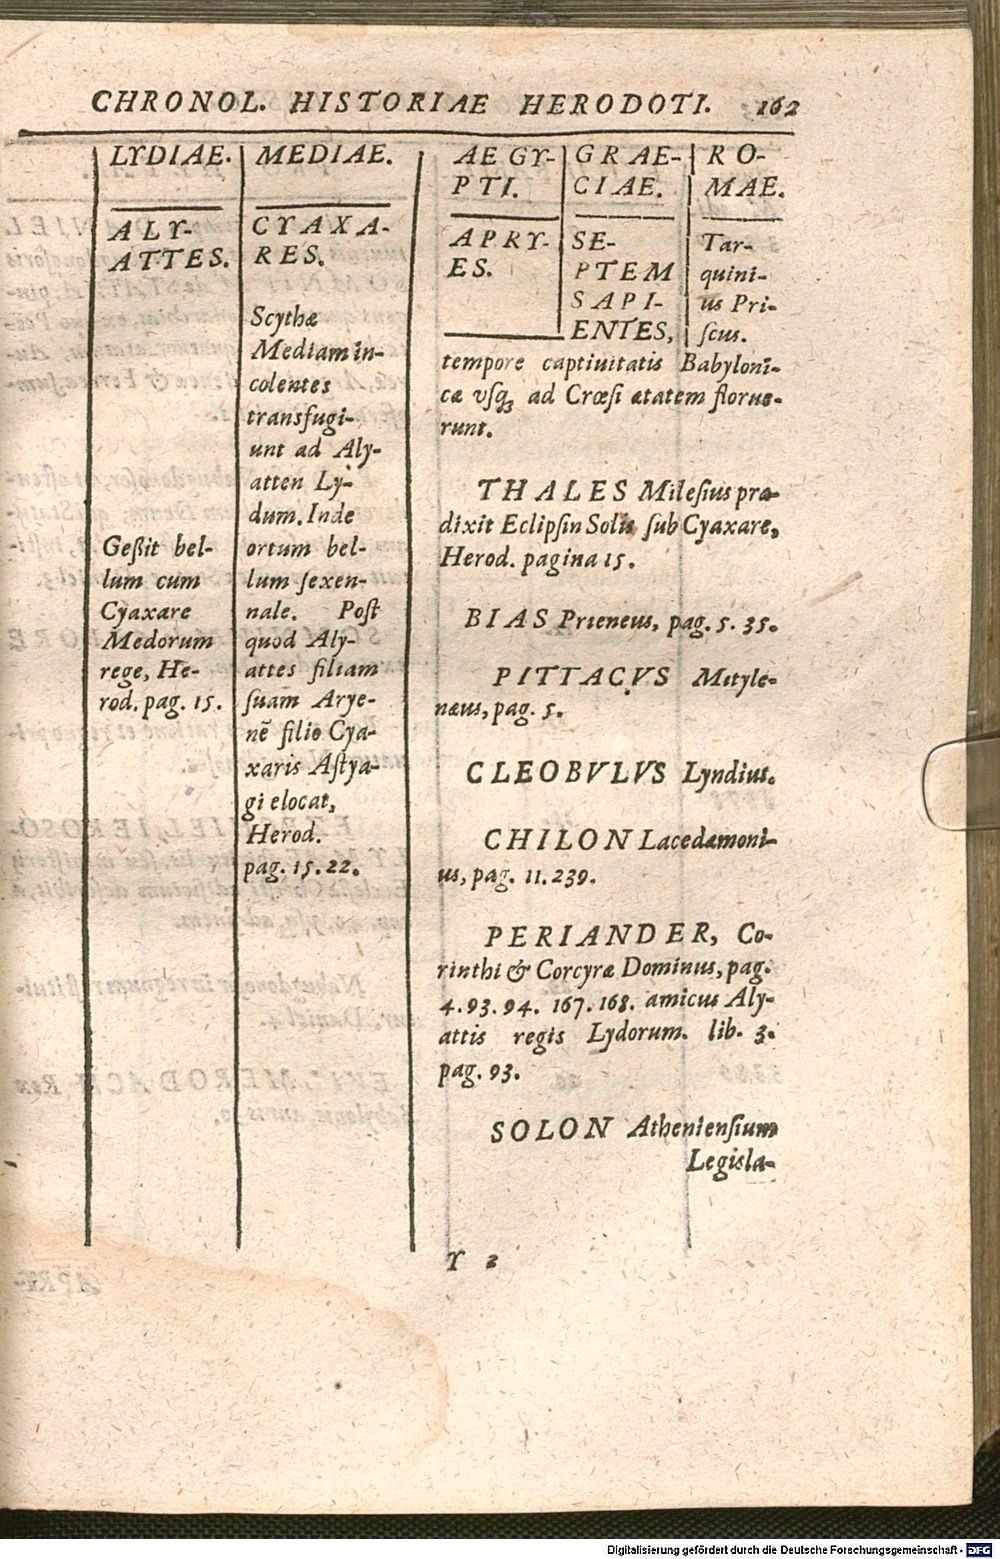 CHRONOL. HISTORIAE HERODOTI. 162
LYDIAE.
ALY-
ATTES.
Geßit bel-
lum cum
Cyaxare
Medorum
rege, He-
rod. pag. 15.
MEDIAE.
CYAXA-
RES.
Scythæ
Mediam in-
colentes
transfugi-
unt ad Aly-
atten Ly-
dum. Inde
ortum bel-
lum sexen-
nale. Post
quod Aly-
attes filiam
suam Arye-
nē filio Cya-
xaris Astya-
gi elocat,
Herod.
pag. 15. 22.
AEGY-
PTI.
APRY-
ES.
GRAE-
CIAE.
SE-
PTEM
SAPI-
ENTES,
RO-
MAE.
Tar-
quini-
us Pri-
scus.
tempore captiuitatis Babyloni-
cæ vsq; ad Crœsi ætatem florue-
runt.
THALES Milesius præ-
dixit Eclipsin Solis sub Cyaxare,
Herod. pagina 15.
BIAS Prieneus, pag. 5. 35.
PITTACVS Mityle-
næus, pag. 5.
CLEOBVLVS Lyndius.
CHILON Lacedæmoni-
us, pag. 11. 239.
PERIANDER, Co-
rinthi & Corcyræ Dominus, pag.
4. 93. 94. 167. 168. amicus Aly-
attis regis Lydorum. lib. 3.
pag. 93.
SOLON Atheniensium
Legisla-
Y 2
Digitalisierung gefördert durch die Deutsche Forschungsgemeinschaft - DFG